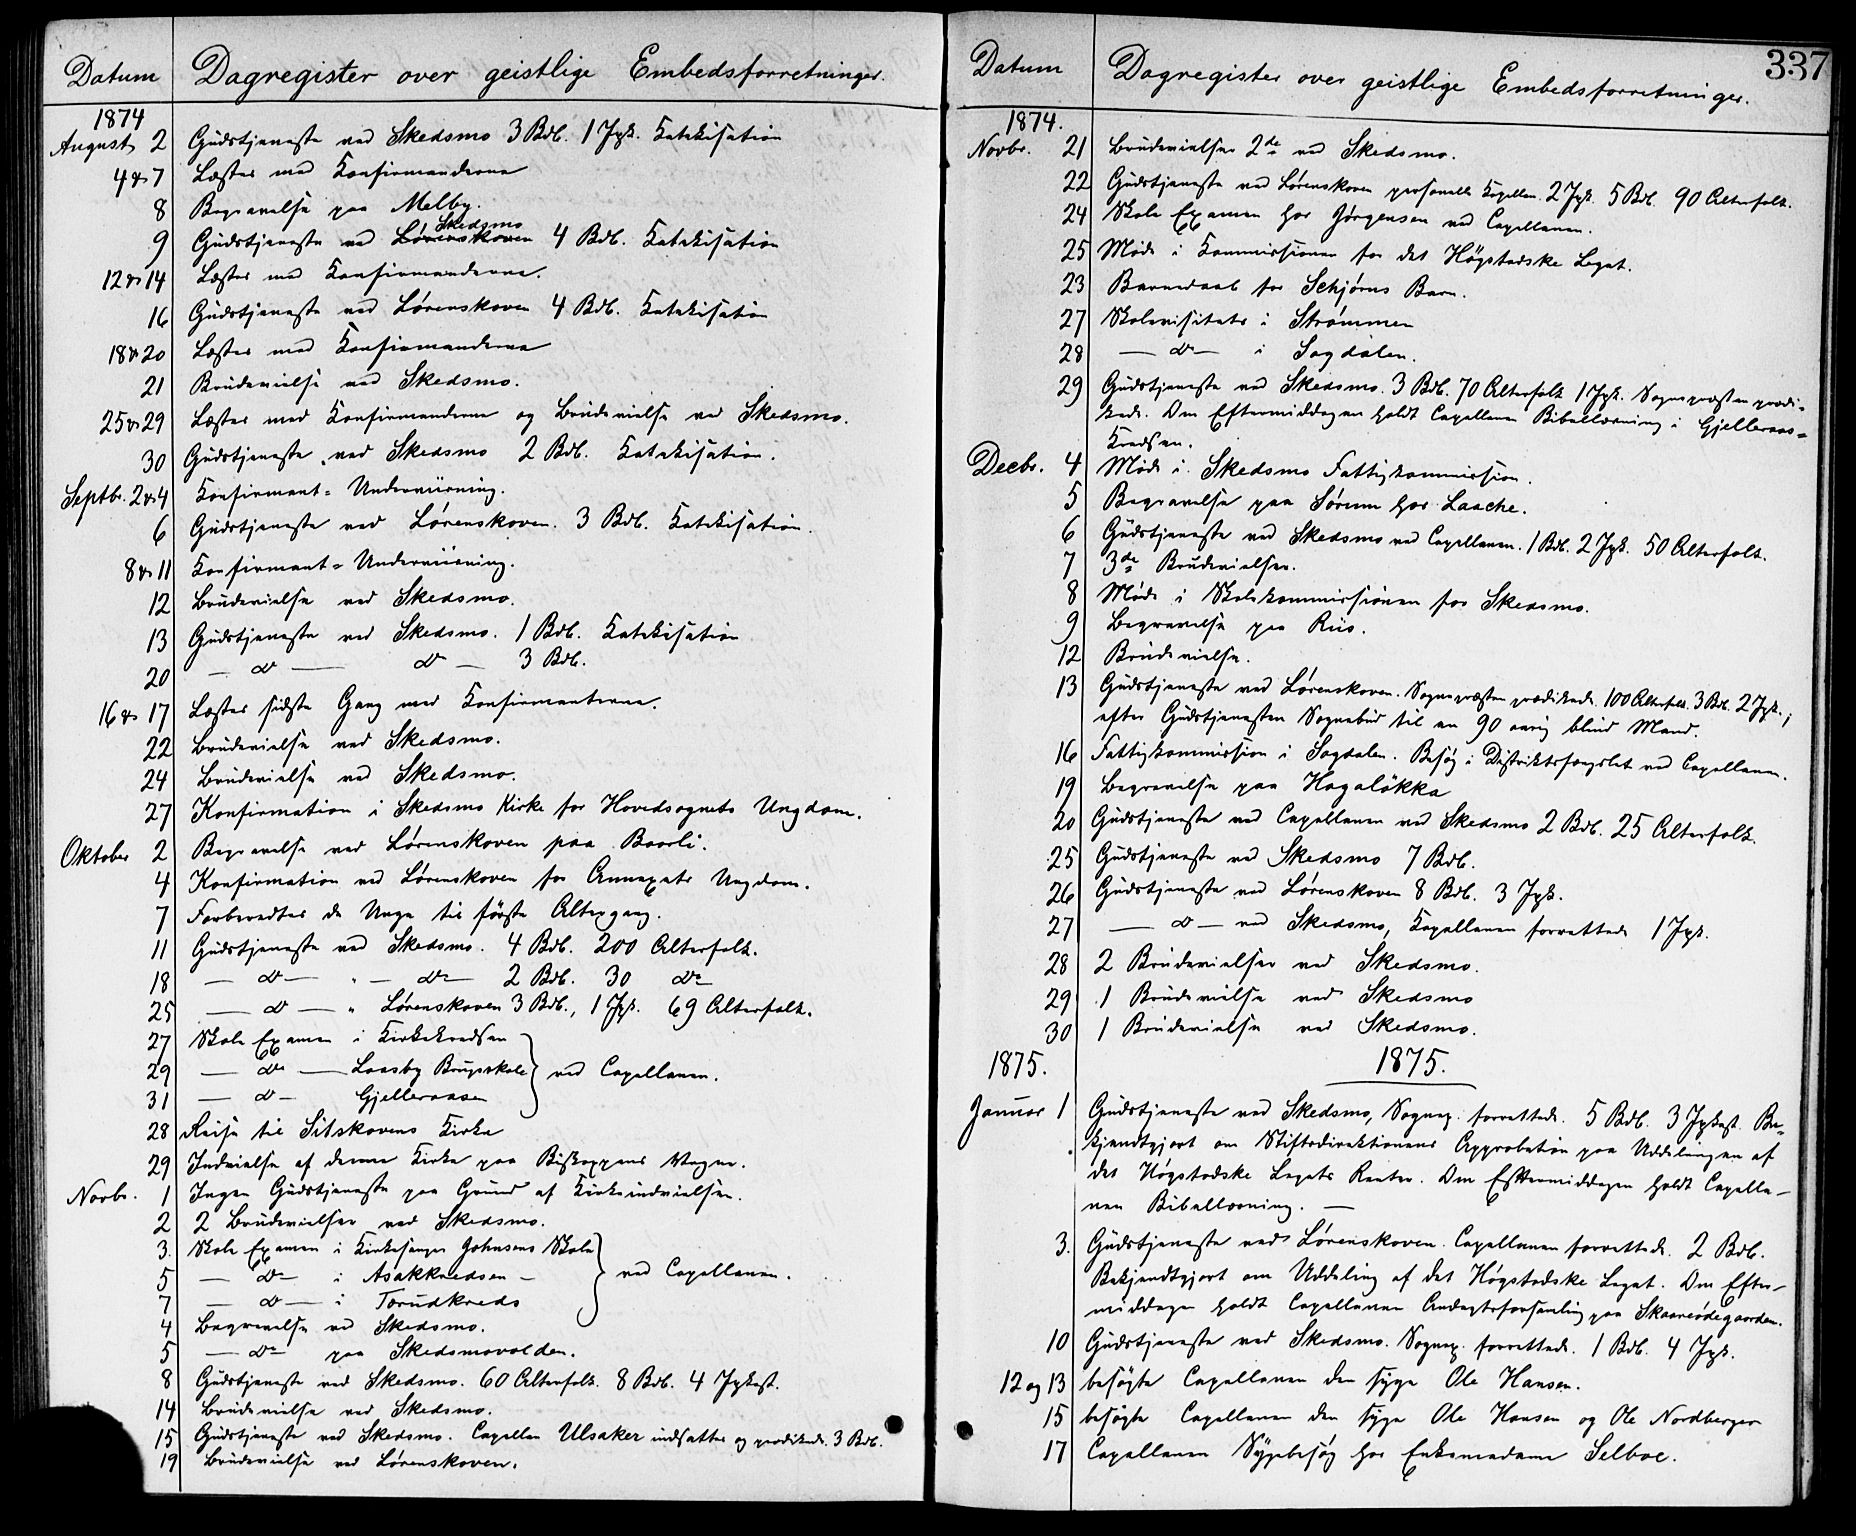 Datum Dagregister over geistlige Embedsforretninger.
1874
August 2 Gudstjeneste ved Skedsmo 3 Bdb. 1 Jgk. Katekisation
4 & 7 Læstes med Konfirmanderne
8 Begravelse paa Melby.
Skedsmo
9 Gudstjeneste ved Lørenskoven 4 Bdb. Katekisation
12 & 14 Læstes med Konfirmanderne.
16 Gudstjeneste ved Lørenskoven 4 Bdb. Katekisation
18 & 20 Læstes med Konfirmanderne
21 Brudevielse ved Skedsmo.
25 & 29 Læstes med Konfirmanderne og Brudevielse ved Skedsmo.
30 Gudstjeneste ved Skedsmo 2 Bdb. Katekisation.
Septbr. 2 & 4 Konfirmant-Underviisning.
6 Gudstjeneste ved Lørenskoven. 3 Bdb. Katekisation.
8 & 11 Konfirmant-Underviisning.
12 Brudevielse ved Skedsmo.
13 Gudstjeneste ved Skedsmo. 1 Bdb. Katekisation
20 — do — do — 3 Bdb.
16 & 17 Læstes sidste Gang med Konfirmanterne.
22 Brudevielse ved Skedsmo.
24 Brudevielse ved Skedsmo.
27 Konfirmation i Skedsmo Kirke for Hovedsognets Ungdom.
Oktober 2 Begravelse ved Lørenskoven paa Baarli.
4 Konfirmation ved Lørenskoven for Annexets Ungdom.
7 Forberedtes de Unge til første Altergang.
11 Gudstjeneste ved Skedsmo. 4 Bdb. 200 Alterfolk.
18 — do — " — do — 2 Bdb. 30 do
25 — do — " Lørenskoven 3 Bdb., 1 Jgk. 69 Alterfolk.
27 Skole Examen i Kirkekredsen
29 — do — Laasby Brugsskole } ved Capellanen.
31 — do — Gjelleraasen
28 Reise til Sitskovens Kirke
29 Indvielse af denne Kirke paa Biskoppens Vegne.
Novbr. 1 Ingen Gudstjeneste paa Grund af Kirkeindvielsen.
2 2 Brudevielser ved Skedsmo.
3. Skole Examen i Kirkesanger Johnsens Skole
5 — do — i Asakkredsen — } ved Capellanen.
7 — do — i Torudkreds
4 Begravelse ved Skedsmo.
5 — do paa Skedsmovolden.
8 Gudstjeneste ved Skedsmo. 60 Alterfolk. 8 Bdb. 4 Jgkst.
14 Brudevielse ved Skedsmo.
15 Gudstjeneste ved Skedsmo. Capellan Ulsaker indsattes og prædikede. 3 Bdb.
19 Brudevielse ved Lørenskoven.
337
Datum Dagregister over geistlige Embedsforretninger.
1874.
Novbr. 21 Brudevielser 2de ved Skedsmo.
22 Gudstjeneste ved Lørenskoven personelle Kapellan. 2 Jgk. 5 Bdb. 90 Alterfolk.
24 Skole Examen hos Jørgensen ved Capellanen.
25 Møde i Kommissionen for det Högstadske Legat.
23 Barnedaab for Schjørns Barn.
27 Skolevisitats i Strømmen
28 — do — i Sagdalen.
29 Gudstjeneste ved Skedsmo. 3 Bdb. 70 Alterfolk 1 Jgk. Sognepræsten prædi-
kede. Om Eftermiddagen holdt Capellanen Bibellæsning i Gjelleraas-
Kredsen.
Decbr. 4 Møde i Skedsmo Fattigkommission.
5 Begravelse paa Sørum hos Laache.
6 Gudstjeneste ved Skedsmo ved Capellanen. 1 Bdb. 2 Jgk. 50 Alterfolk.
7 3de Brudevielser.
8 Møde i Skolekommissionen for Skedsmo.
9 Begravelse paa Riis.
12 Brudevielse.
13 Gudstjeneste ved Lørenskoven. Sognepræsten prædikede. 100 Alterfolk. 3 Bdb. 2 Jgk.;
efter Gudstjenesten Sognebud til en 90 aarig blind Mand.
16 Fattigkommission i Sagdalen. Besøg i Distriktsfængslet ved Capellanen.
19 Begravelse paa Hagaløkka
20 Gudstjeneste ved Capellanen ved Skedsmo 2 Bdb. 25 Alterfolk.
25 Gudstjeneste ved Skedsmo 7 Bdb.
26 Gudstjeneste ved Lørenskoven 8 Bdb. 3 Jgk.
27 — do — ved Skedsmo, Kapellanen forrettede 1 Jgk.
28 2 Brudevielser ved Skedsmo.
29 1 Brudevielse ved Skedsmo
30 1 Brudevielse ved Skedsmo.
1875. 1875.
Januar 1 Gudstjeneste ved Skedsmo, Sognep. forrettede. 5 Bdb. 3 Jgkst. Be-
kjendtgjort om Stiftsdirektionens Approbation paa Uddelingen af
det Högstadske Legats Renter. Om Eftermiddagen holdt Capella-
nen Bibellæsning. —
3. Gudstjeneste ved Lørenskoven. Capellanen forrettede. 2 Bdb.
Bekjendtgjort om Uddeling af det Högstadske Legat. Om Efter-
middagen holdt Capellanen Andagtsforsamling paa Skaarerødegaarden.
10 Gudstjeneste ved Skedsmo. Sognep. forrettede. 1 Bdb. 4 Jgk.
12 og 13 besøgte Capellanen den syge Ole Hansen.
15 besøgte Capellanen den syge Ole Hansen og Ole Nordberger
17 Capellanen Sygebesøg hos Enkemadame Selboe.